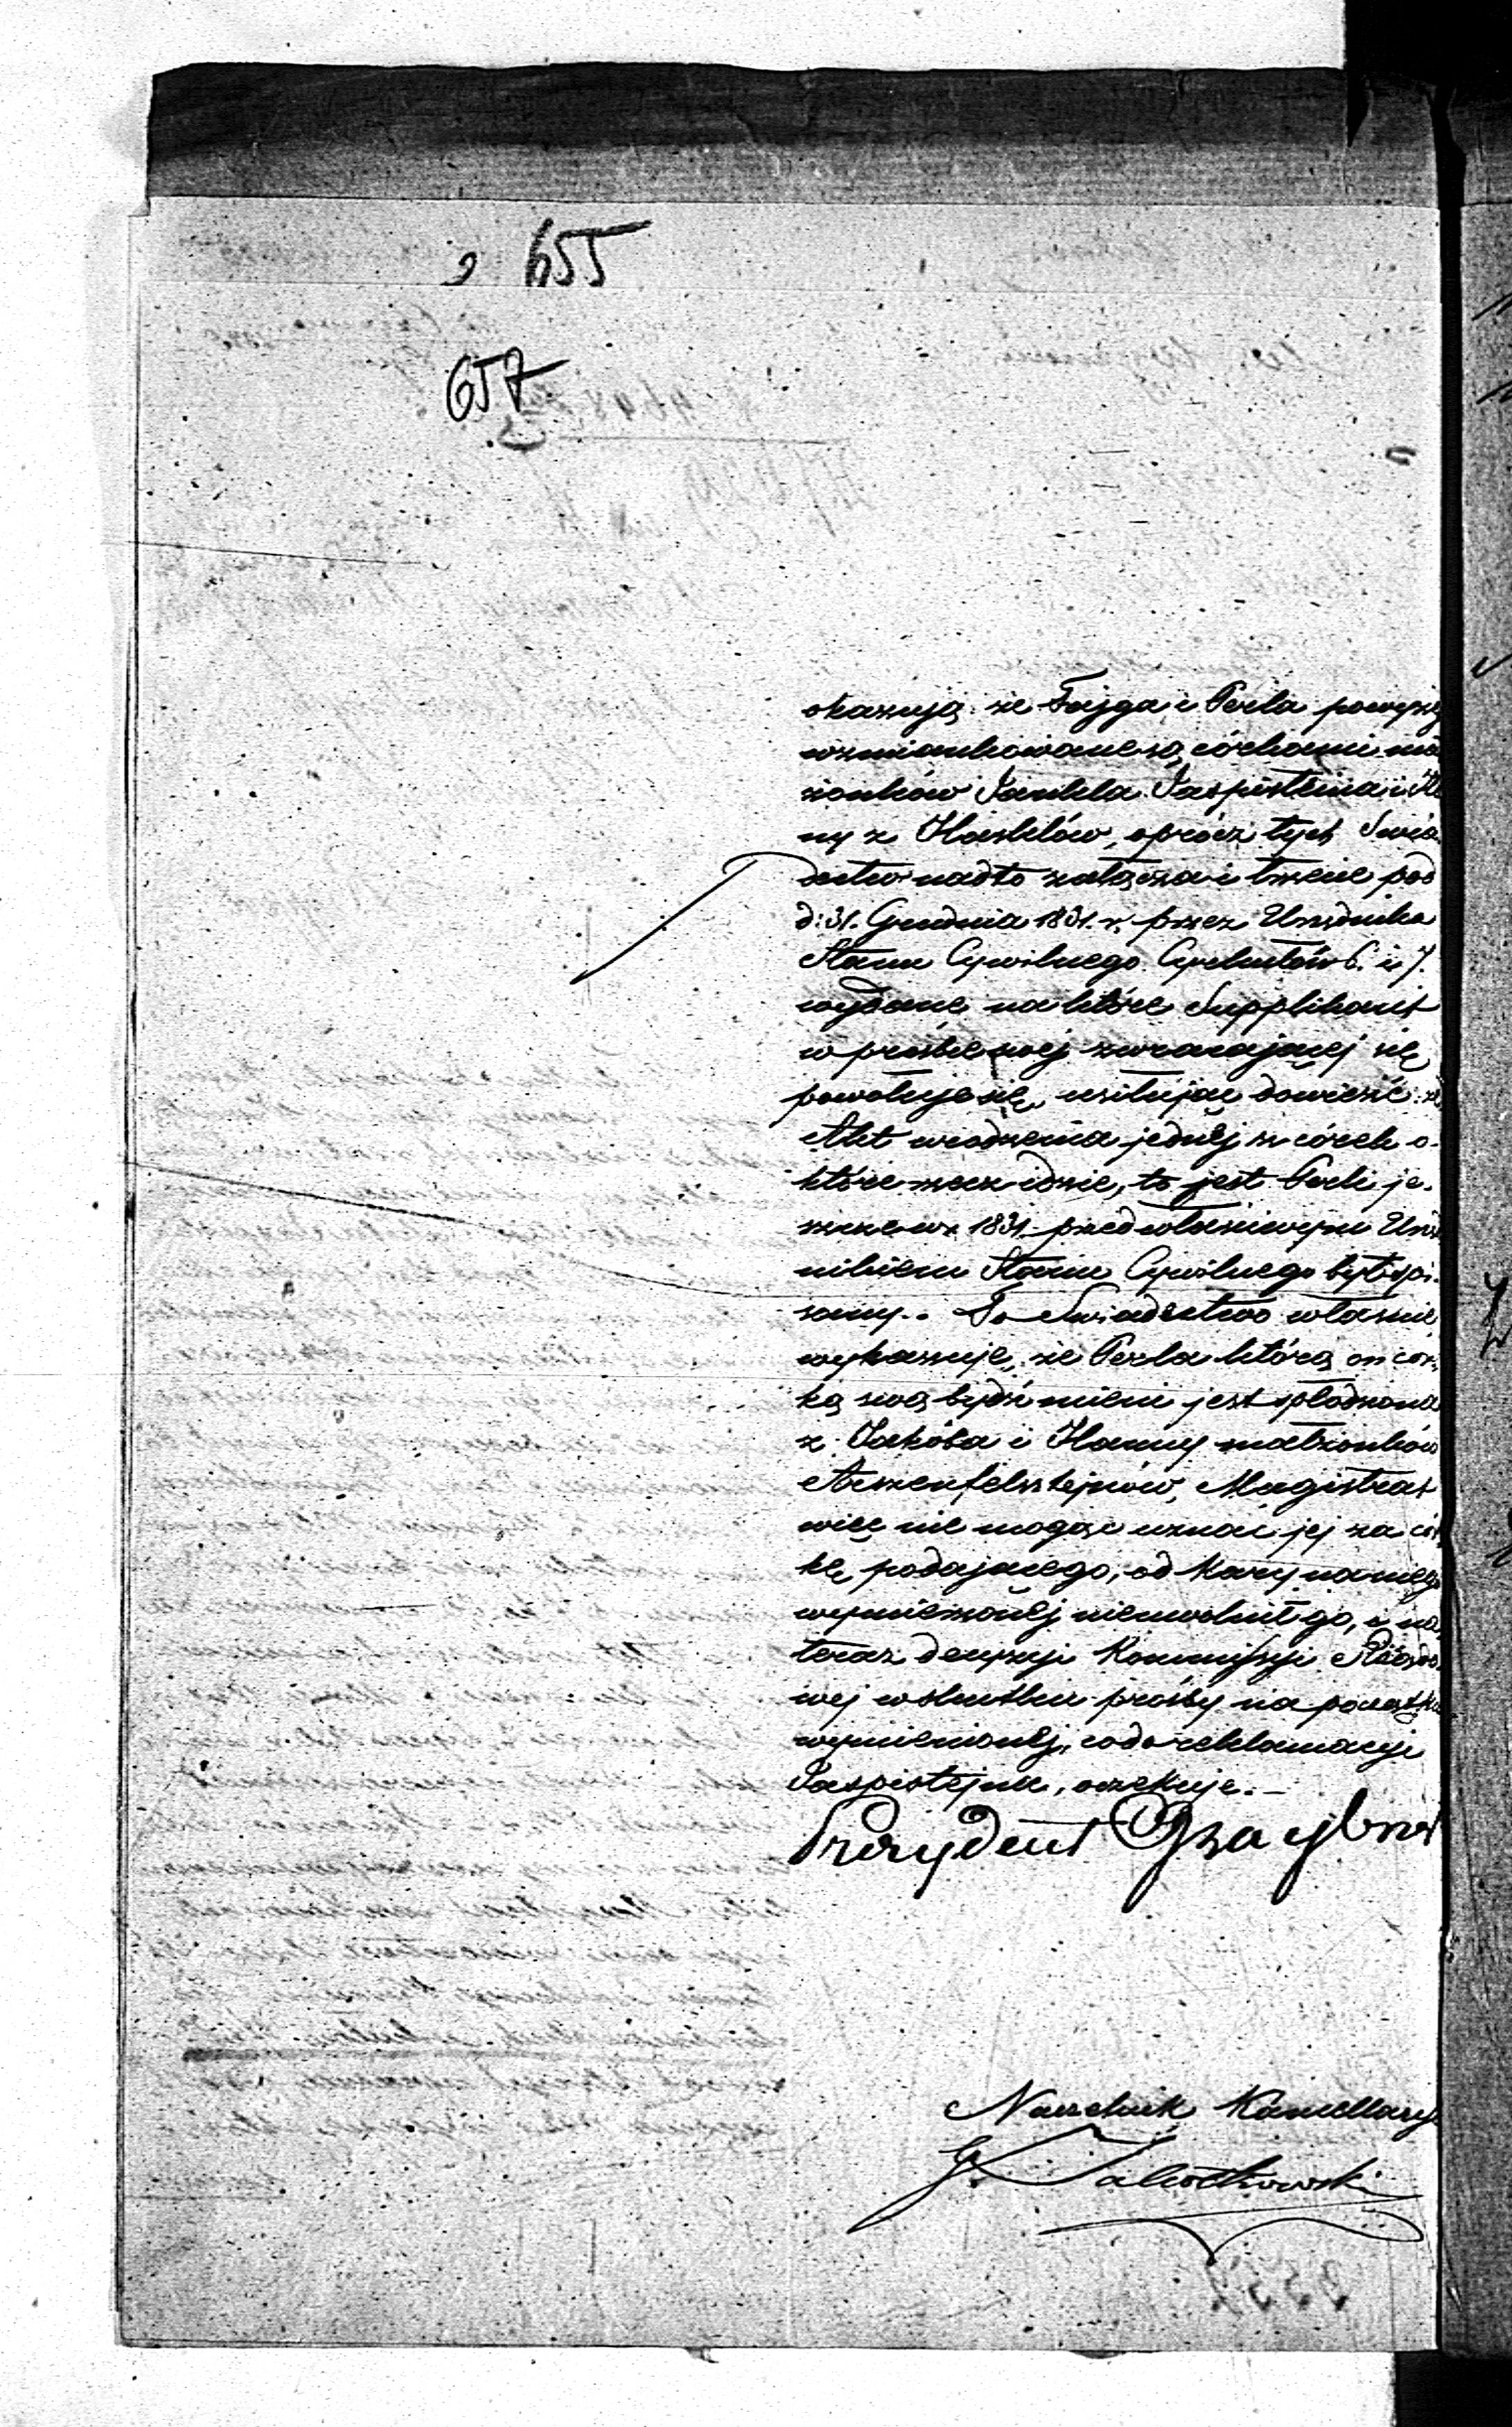 655
657
okazują że Fajga i Perla powyżej
wzmiankowane są córkami mał
żonków Jankla Jaspisteina i Ha
ny z Haskelów, oprócz tych Świa
dectw nadto załącza i trzecie pod
d: 31. Grudnia 1831. r. przez Urzędnika
Stanu Cywilnego Cyrkułów 6. i 7.
wydane na które Supplikant
w prośbie swej zwracającej się
powołuje się, usiłując dowieść że
Akt urodzenia jednej z córek o
które rzecz idzie, to jest Perli je-
szcze w r. 1831 przed właściwym Urzę
nikiem Stanu Cywilnego był spi-
sany.. To Świadectwo właśnie
wykazuje, że Perla którą on cór-
ką swą bydź mieni jest spłodzona
z Jakóba i Hanny małżonków
Magistrat
więc nie mogąc uznać jej za cór
kę podającego, od kary na niego
wymierzonej nieuwolnił go, i na
teraz decyzyi Kommissyi Rządo
wej w skutku prośby na początku
wymienionej, co do reklamacyi
Jaspistejna, oczekuje.-
Prezydent
Naczelnik Kancellaryi